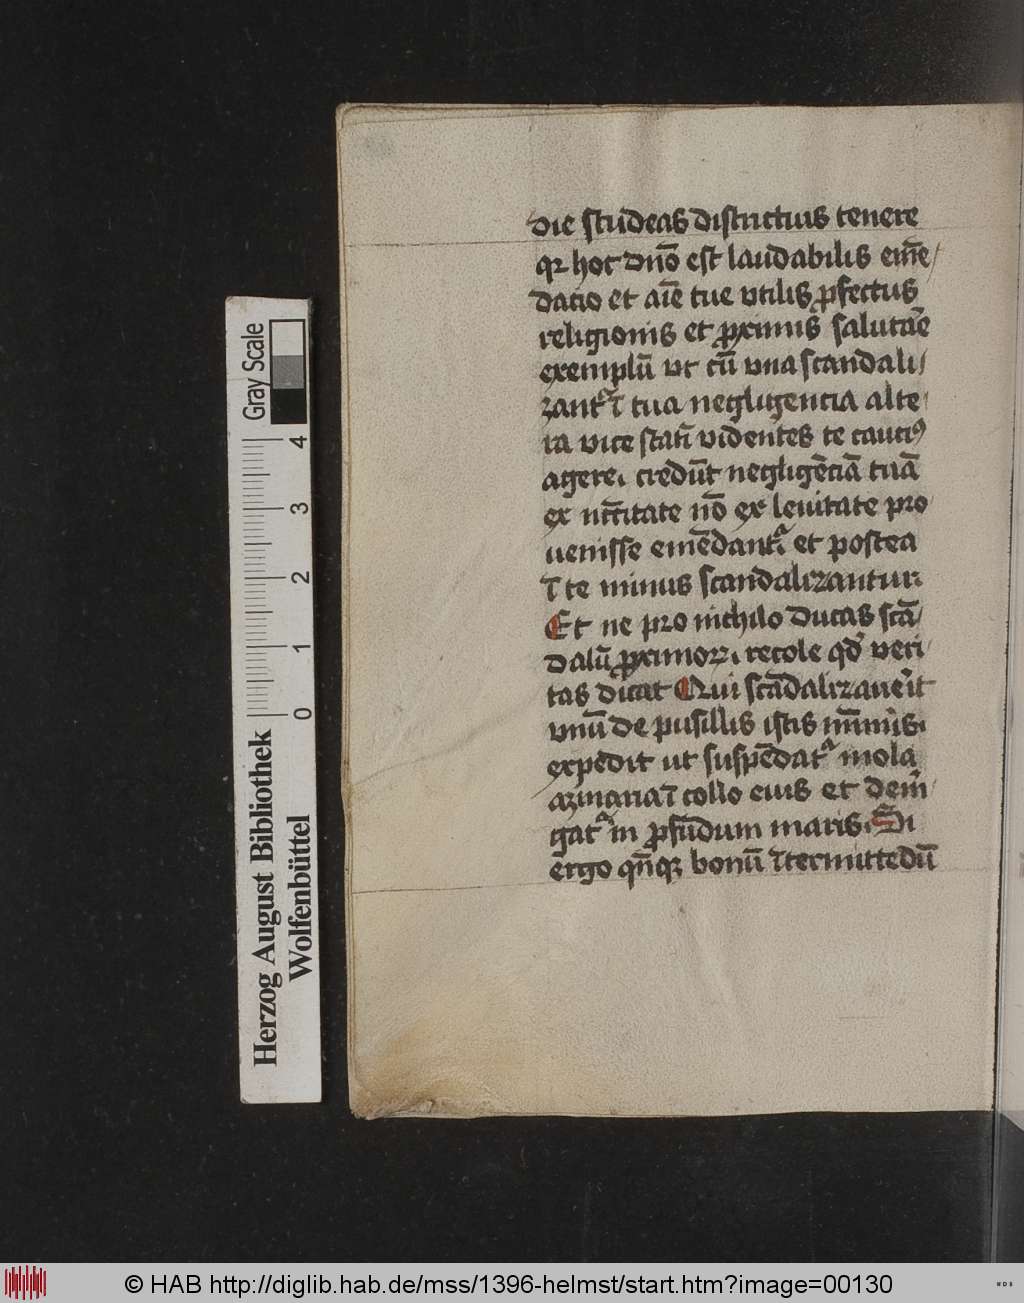 die studeas districtius tenere
qr hoc dn̄o est laudabilis em̄e/
datio et aīe tue vtilis ꝓfectus
religionis et ꝓximis salutar̄e
exemplū vt cū vna scandali/
zantr ī tua negligencia alte
ra vice statī videntes te cautiꝰ
agere. credūt negligēciā tuā
ex nc̄citate nō ex leuitate pro
uenisse emēdantr. et postea
ī te minus scandalizantur.
Et ne pro nichilo ducas scā/
dalū ꝓximoꝝ. recole qd̓ veri
tas dicat Qui scādalizaue̓it
vnū de pusillis istis mīmis.
expedit ut suspēdatr mola
azinaria ī collo eius et dem̓
gatr in ꝓfūdum maris. Si
ergo qn̄qꝫ bonū ītermittedū
Herzog August Bibliothek
Wolfenbüttel
0 1 2 3 4
Gray Scale
© HAB http://diglib.hab.de/mss/1396-helmst/start.htm?image=00130
WDB